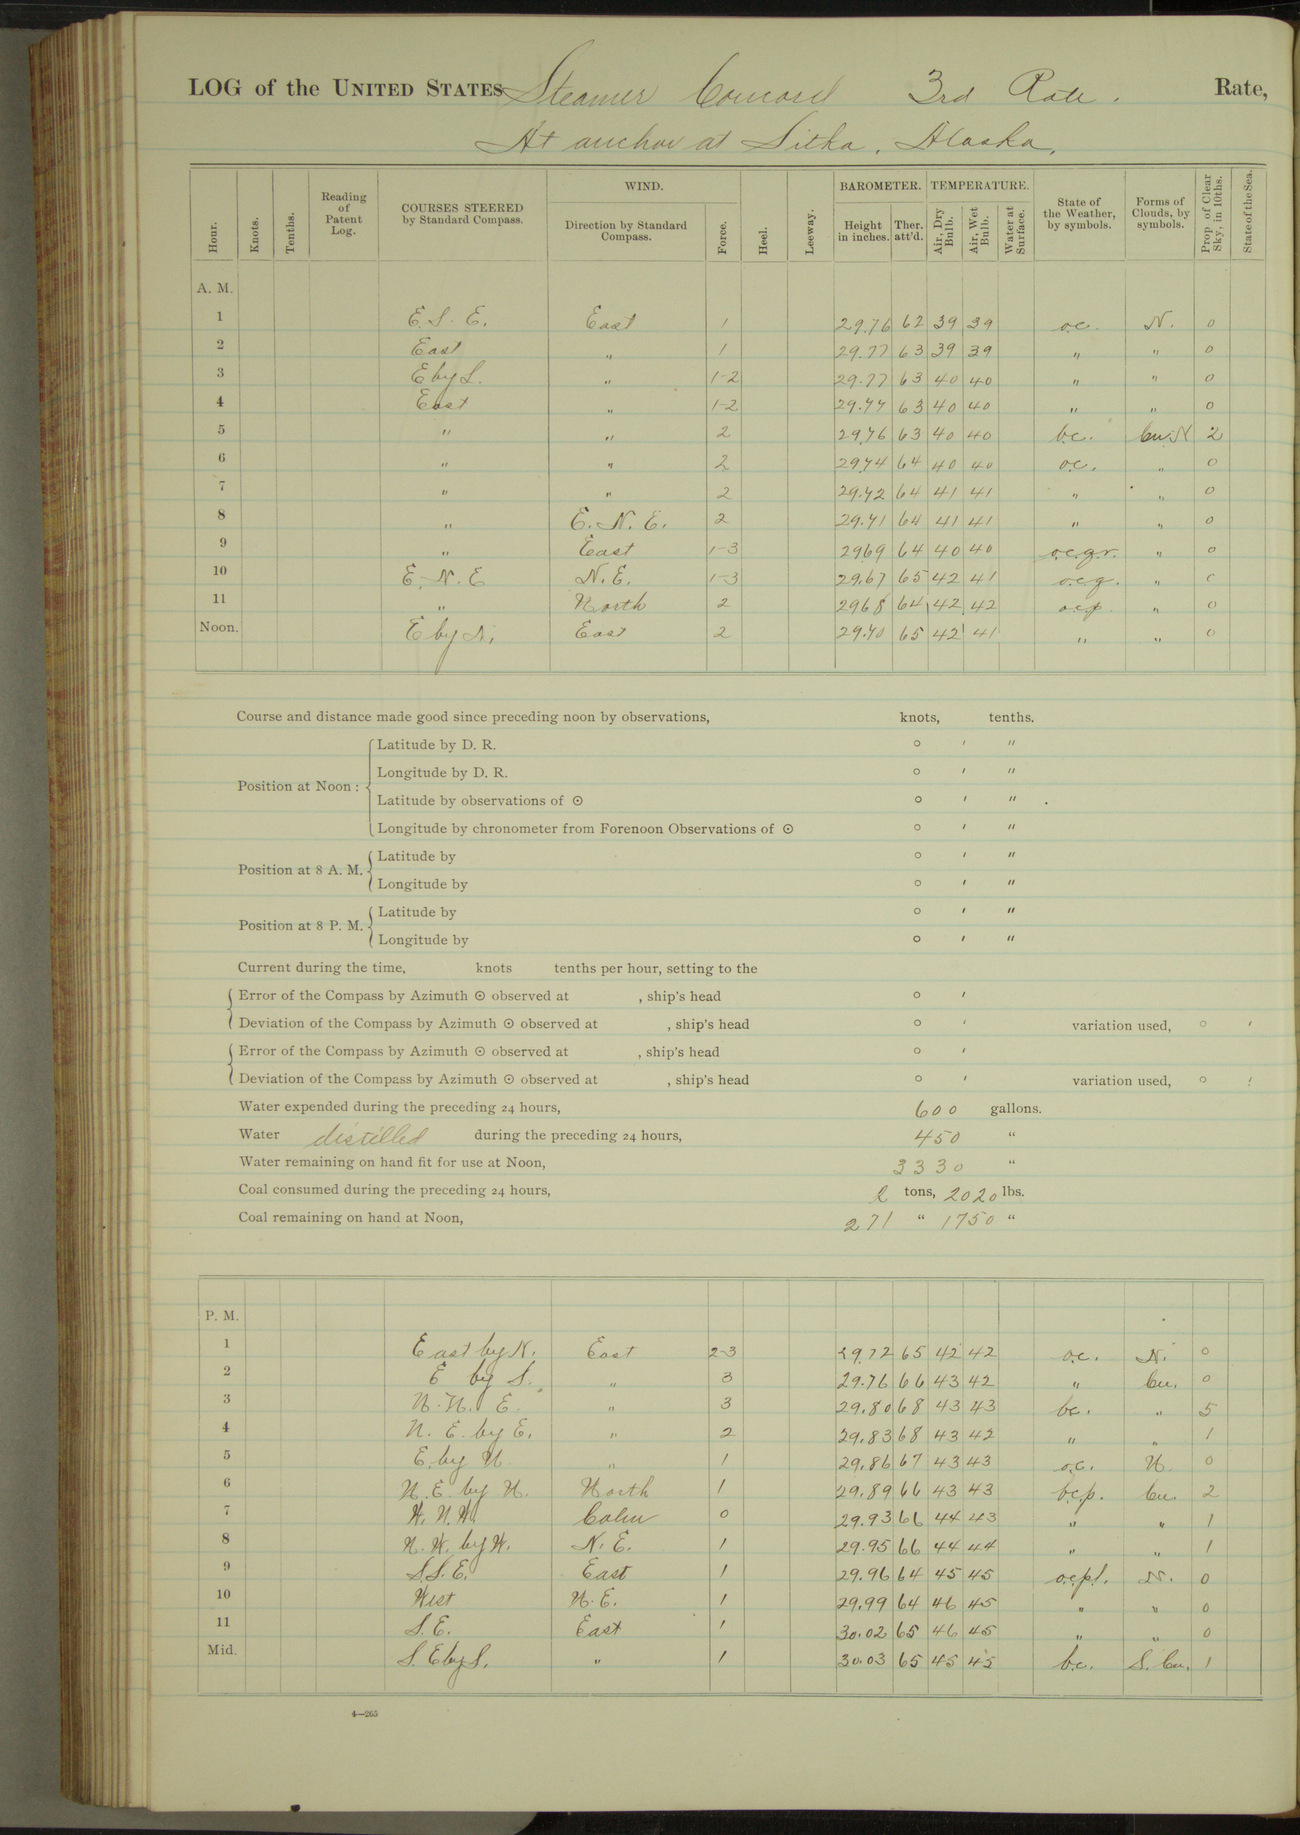 LOG of the UNITED STATES Steamer Concord 3rd Rate. Rate,
At anchor at Sitka, Alaska.
Hour. Knots. Tenths. Reading of Patent Log. COURSES STEERED by Standard Compass. WIND. Direction by Standard Compass. Force. Heel. Leeway. BAROMETER. Height in inches. Ther. att'd. TEMPERATURE. Air, Dry Bulb. Air, Wet Bulb. Water at Surface. State of the Weather, by symbols. Forms of Clouds, by symbols. Prop. of Clear Sky, in 10ths. State of the Sea.
A. M.
1 E. S. E. East 1 29.76 62 39 39 o.c. N. 0
2 East " 1 29.77 63 39 39 " " 0
3 E by S. " 1-2 29.77 63 40 40 " " 0
4 East " 1-2 29.77 63 40 40 " " 0
5 " " 2 29.76 63 40 40 b.c. Cu. N 2
6 " " 2 29.74 64 40 40 o.c. " 0
7 " " 2 29.72 64 41 41 " " 0
8 " E. N. E. 2 29.71 64 41 41 " " 0
9 " East 1-3 29.69 64 40 40 o.c.g.r. " 0
10 E. N. E N. E. 1-3 29.67 65 42 41 o.c.g. " 0
11 " North 2 29.68 64 42 42 o.c.p. " 0
Noon. E by N. East 2 29.70 65 42 41 " " 0
Course and distance made good since preceding noon by observations, knots, tenths.
Position at Noon: Latitude by D. R. ° ′ ″
Longitude by D. R. ° ′ ″
Latitude by observations of ☉ ° ′ ″
Longitude by chronometer from Forenoon Observations of ☉ ° ′ ″
Position at 8 A. M. Latitude by ° ′ ″
Longitude by ° ′ ″
Position at 8 P. M. Latitude by ° ′ ″
Longitude by ° ′ ″
Current during the time, knots tenths per hour, setting to the
Error of the Compass by Azimuth ☉ observed at , ship's head ° ′
Deviation of the Compass by Azimuth ☉ observed at , ship's head ° ′ variation used, ° ′
Error of the Compass by Azimuth ☉ observed at , ship's head ° ′
Deviation of the Compass by Azimuth ☉ observed at , ship's head ° ′ variation used, ° ′
Water expended during the preceding 24 hours, 600 gallons.
Water distilled during the preceding 24 hours, 450 "
Water remaining on hand fit for use at Noon, 3330 "
Coal consumed during the preceding 24 hours, 2 tons, 2020 lbs.
Coal remaining on hand at Noon, 271 " 1750 "
P. M.
1 East by N. East 2-3 29.72 65 42 42 o.c. N. 0
2 E by S. " 3 29.76 66 43 42 " Cu. 0
3 N. N. E. " 3 29.80 68 43 43 bc. " 5
4 N. E. by E. " 2 29.83 68 43 42 " " 1
5 E. by N. " 1 29.86 67 43 43 o.c. N. 0
6 N. E. by N. North 1 29.89 66 43 43 b.c.p. Cu. 2
7 W. N. W. Calm 0 29.93 66 44 43 " " 1
8 N. W. by W. N. E. 1 29.95 66 44 44 " " 1
9 S. S. E. East 1 29.96 64 45 45 o.c.p.l. N. 0
10 West N. E. 1 29.99 64 46 45 " " 0
11 S. E. East 1 30.02 65 46 45 " " 0
Mid. S. E by S. " 1 30.03 65 45 45 b.c. S. Cu. 1
4—265